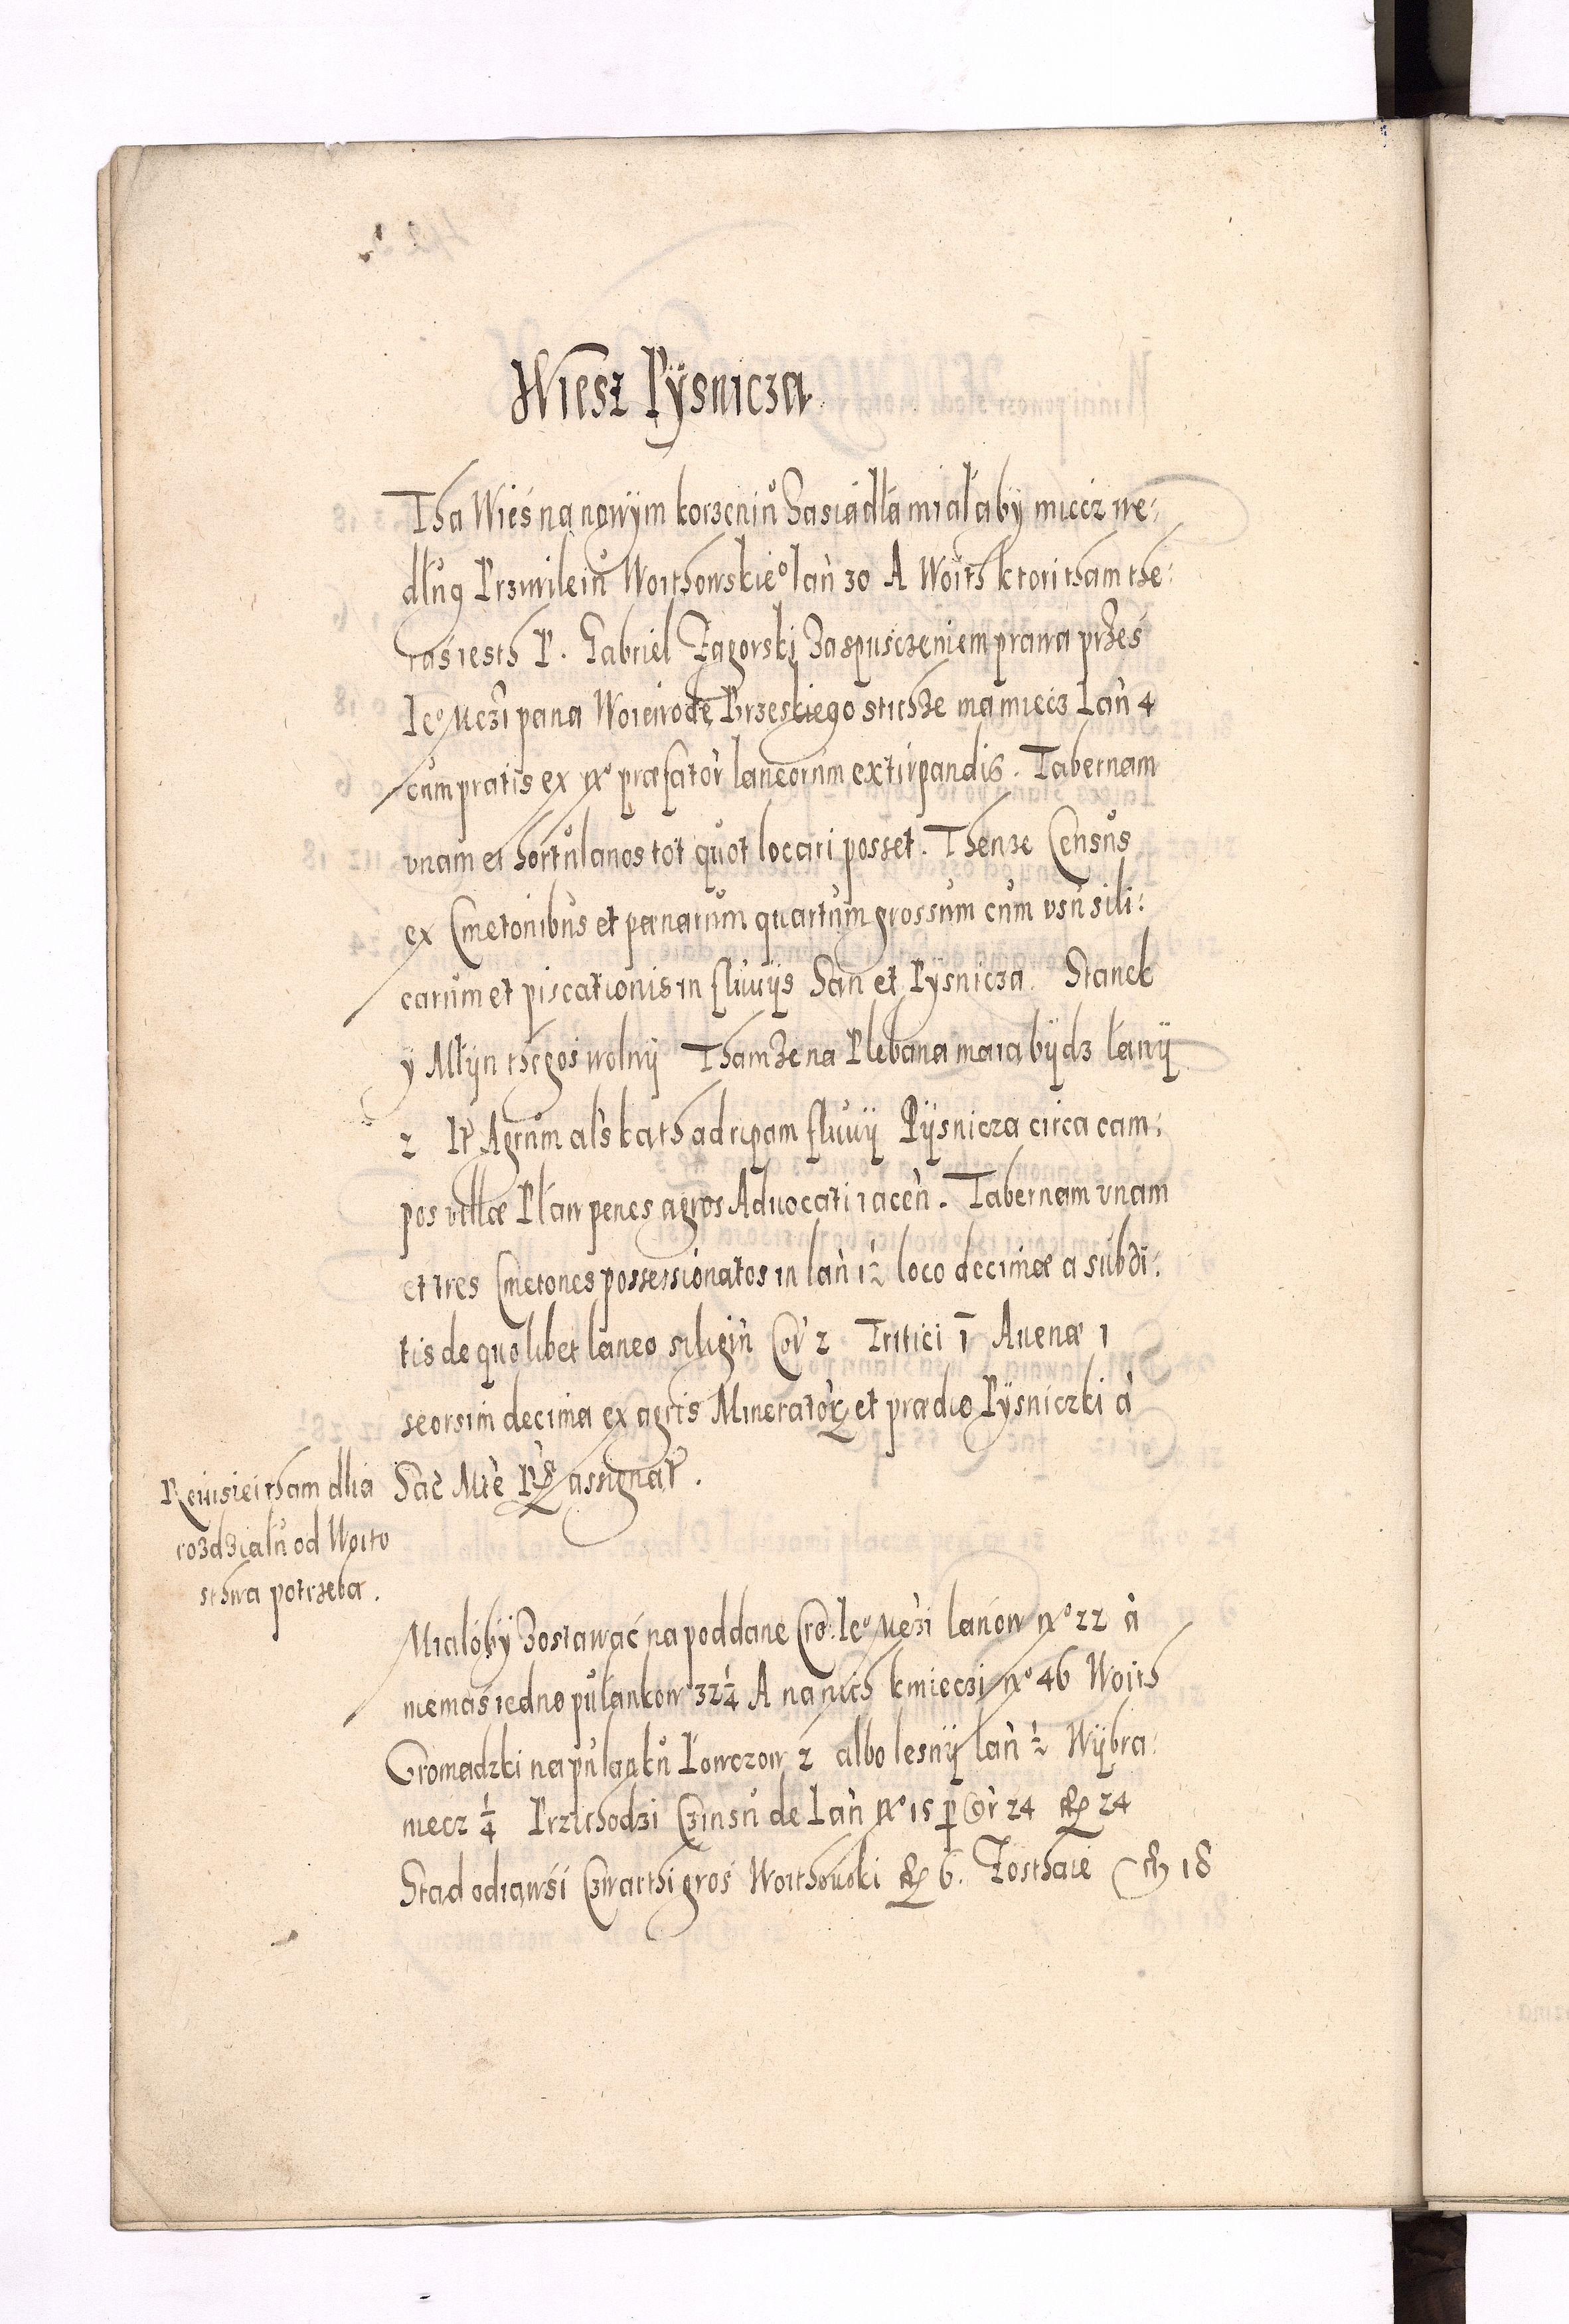 Wiesz Pÿsnicza
Tha Wieś na nowÿm korzeniu Sasiadła miałabÿ miećz we:
dług Przÿwileiu Woithowskieo łan 30 A Woith ktori tham the:
raś iesth P. Gabriel Zagorski Zaspuśczeniem prawa prześ
Ieo Mczi pana Woiewode Brzeskiego stichże ma miecz Łan 4
cum pratis ex no præfator laneorum extirpandis. Tabernam
vnam et hortulanos tot quot locari posset. Thenze Census
ex Cmetonibus et pænarum quartum grossum cum vsu sili:
carum et piscationis in fluuijs San et Pÿsnicza. Stanek
ÿ Młÿn thegoś wolnÿ Thamże na Plebana maia bÿdz łanÿ
2 It Agrum als kath ad ripam fluuij Pÿsnicza circa cam:
pos villæ Pław penes agros Aduocati iacen. Tabernam vnam
et tres Cmetones possessionatos in lan 1½ loco decimæ a subdi:
tis de quolibet laneo siligin Cor 2 Tritici 1 Auenæ 1
seorsim decima ex agris Minerator et prædio Pÿsniczki a
Sac Mte Ra assignat.
Reuisiei tham dlia
rozdziału od Woito
sthwa potrzeba.
Miałobÿ Zostawać na poddane Cro. Ieo Mczi łanow no 22 a
niemaś iedno pułankow 32¼ A na nich kmieczi no 46 Woith
Gromadzki na pułanku Łowczow 2 albo lesnÿ łan ½ Wÿbra:
niecz ¼ Przichodzi Czinsu de Łan no 15 p Gr 24 24
Stad odiawśi Czwarthi groś Woithowski 6. Zosthaie 18